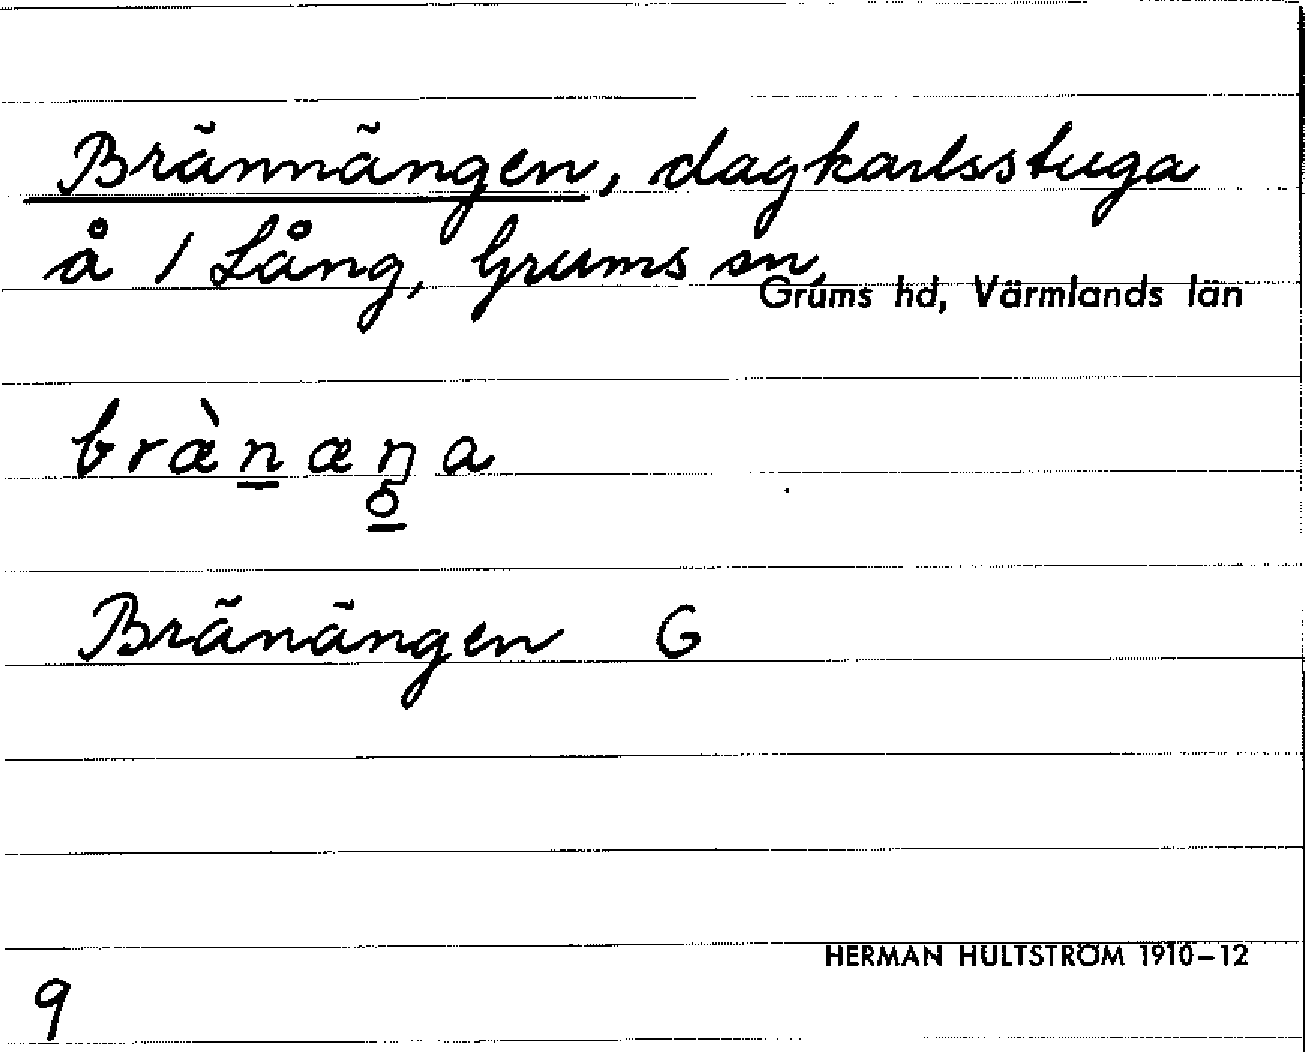 Brännängen, dagkarlsstuga
å 1 Lång, Grums sn,
Grums hd, Värmlands län
bræ̀n̲æŋ̱a
Bränängen G
HERMAN HULTSTRÖM 1910–12
9